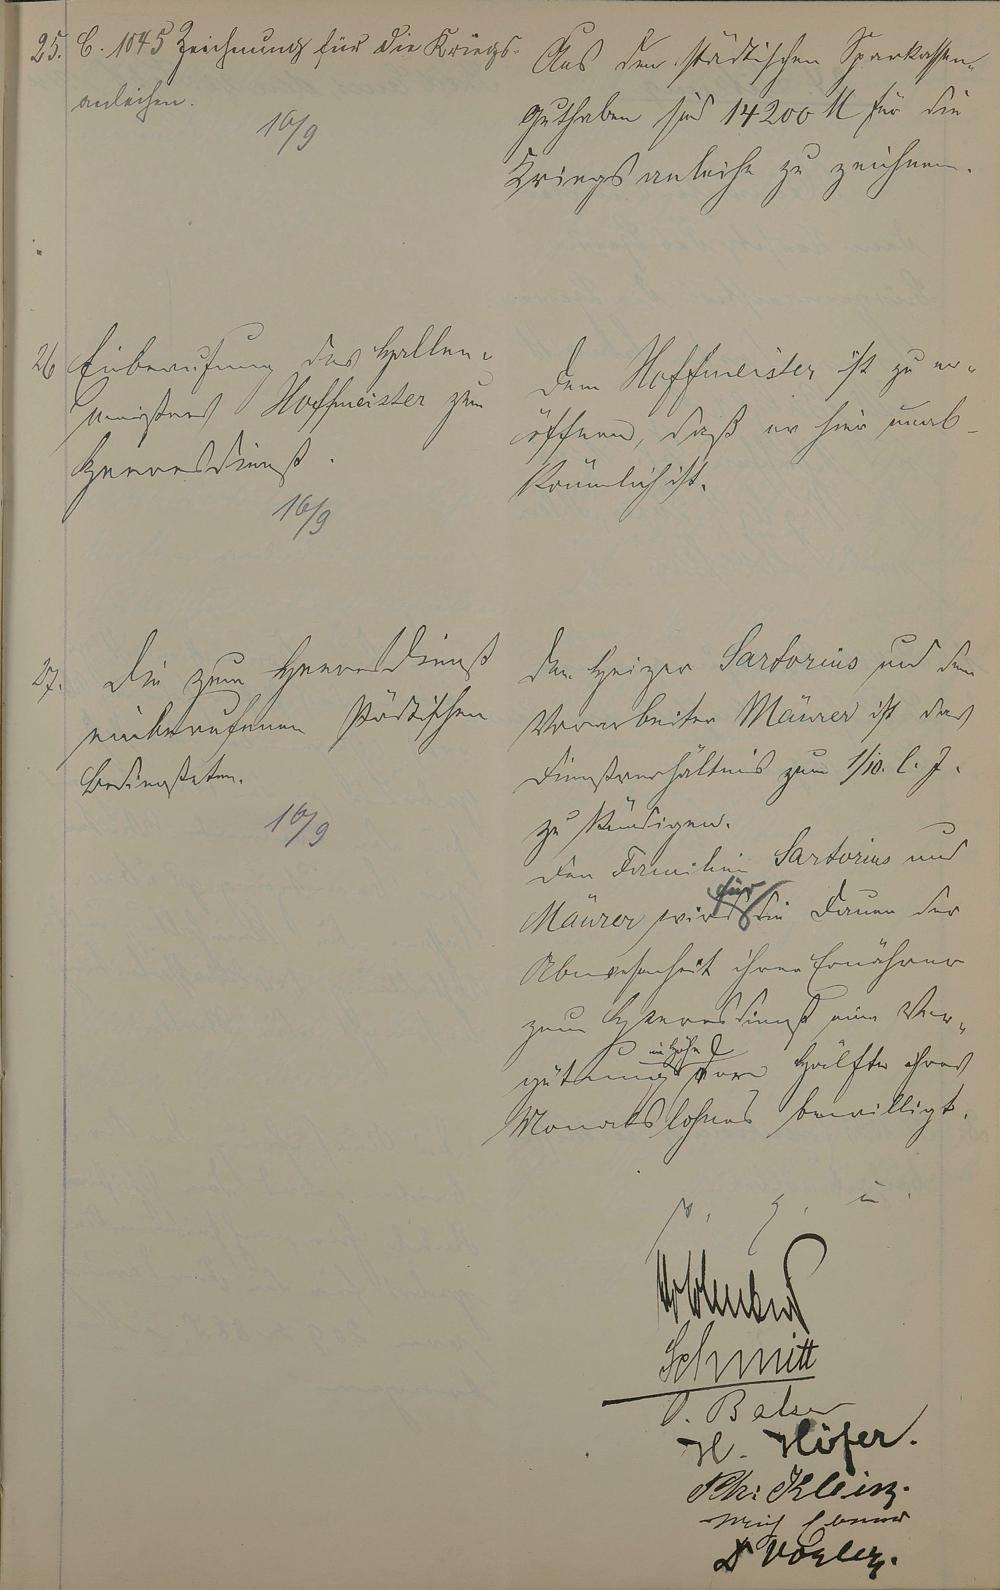 25. C. 1045 Zeichnung für die Kriegs-
anleihen.
16/9
Aus den städtischen Sparkassen-
guthaben sind 14200 M für die
Kriegsanleihe zu zeichnen.
26 Einberufung des Hallen-
meisters Hoffmeister zum
Heeresdienst.
16/9
Dem Hoffmeister ist zu er-
öffnen, daß er hier unab-
kömmlich ist.
27. Die zum Heeresdienst
einberufenen städtischen
Bediensteten.
16/9
Den Heizer Sartorius und dem
Vorarbeiter Mäurer ist das
Dienstverhältnis zum 1/10. l. J.
zu kündigen.
Den Familien Sartorius und
Mäurer wird für die Dauer der
Abwesenheit ihrer Ernährer
zum Heeresdienst eine Ver-
gütung in Höhe der Hälfte ihres
Monatslohnes bewilligt.
v. g. u.
Schmitt
Balser
H. Höfer.
Phi: Klein.
Vogler.